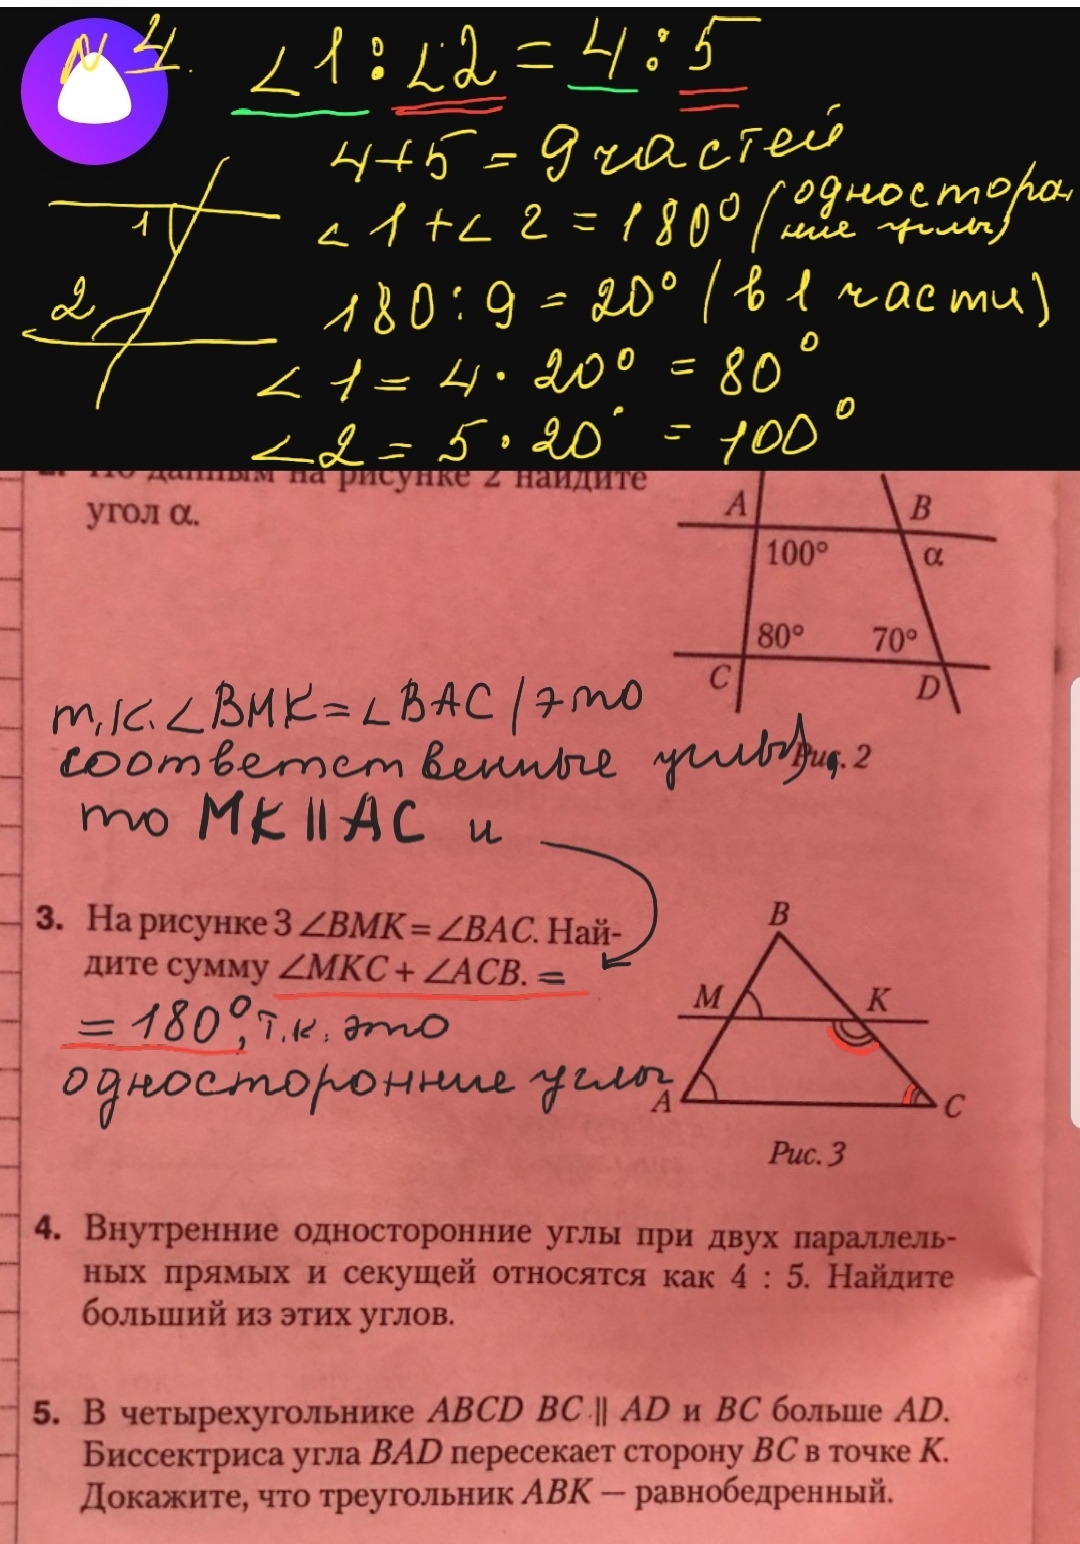 N 4.
∠1 : ∠2 = 4 : 5
4+5 = 9 частей
∠1 + ∠2 = 180° (односторо-
ние углы)
180 : 9 = 20° (в 1 части)
∠1 = 4 · 20° = 80°
∠2 = 5 · 20° = 100°
1
2
2. По данным на рисунке 2 найдите
угол α.
A B
100° α
80° 70°
C D
Рис. 2
т.к. ∠BMK = ∠BAC (это
соответственные углы),
то MK || AC и
3. На рисунке 3 ∠BMK = ∠BAC. Най-
дите сумму ∠MKC + ∠ACB. =
= 180°, т.к. это
односторонние углы
B
M K
A C
Рис. 3
4. Внутренние односторонние углы при двух параллель-
ных прямых и секущей относятся как 4 : 5. Найдите
больший из этих углов.
5. В четырехугольнике ABCD BC || AD и BC больше AD.
Биссектриса угла BAD пересекает сторону BC в точке K.
Докажите, что треугольник ABK — равнобедренный.